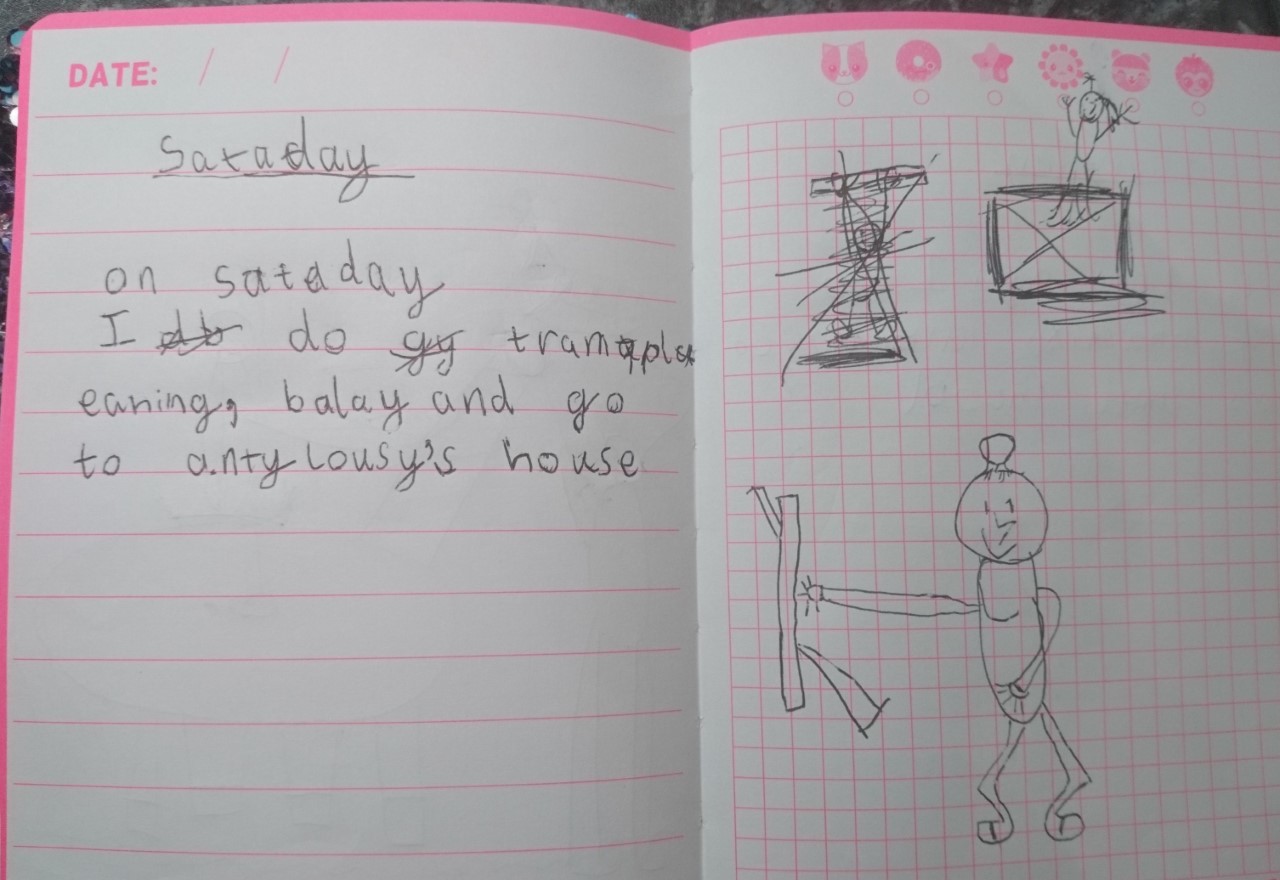 DATE: / /
Sataday
on sataday
I do tram
eaning, balay and go
to antylousy's house